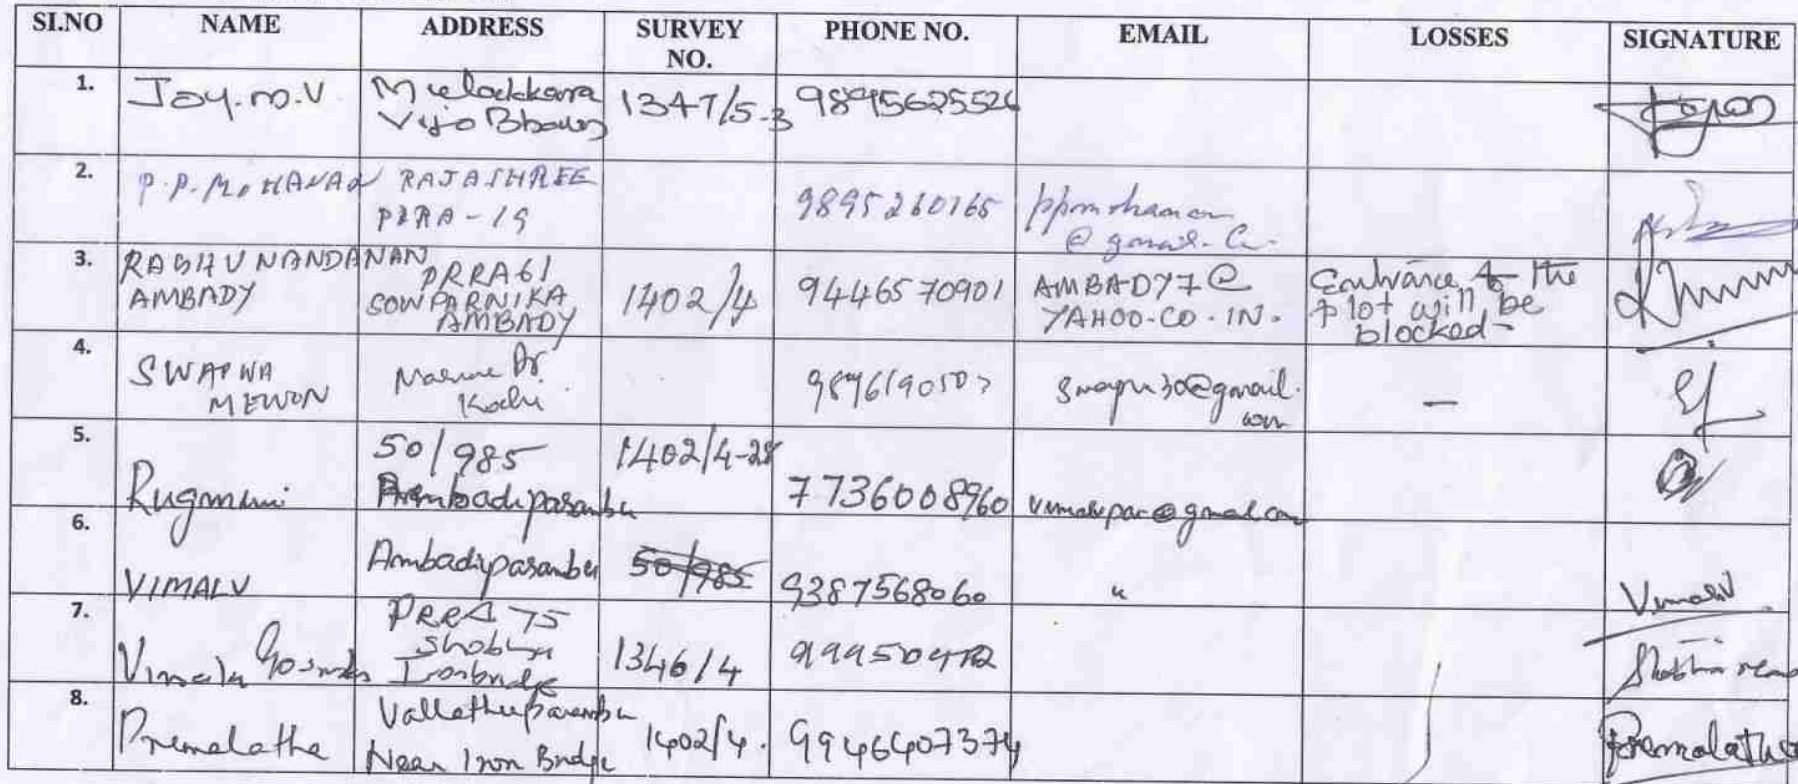 SI.NO NAME ADDRESS SURVEY NO. PHONE NO. EMAIL LOSSES SIGNATURE
1. Joy.M.V 1347/5-3 9895625526
2. P.P. MOHANAN RAJASHREE
PRRA-19 9895260165 ppmohanan
@gmail.
3. RAGHUNANDANAN
AMBADY
PRRA61
SOWPARNIKA
AMBADY
1402/4 9446570901
AMBADY7@
YAHOO.CO.IN.
Entrance to the
plot will be
blocked-
4. SWAPNA
MENON
Marine Dr.
Kochi
—
5. Rugmini
50/985
Ambadiparambu
1402/4-28
7736008960
6. VIMAL V Ambadiparambu 50/985 9387568060 " Vimal V
7. Vimala
PRRA 75
Shobha
Ironbridge
1346/4
8. Premalatha
Vallethuparambu
Near Iron Bridge
1402/4. 9946407374 Premalatha